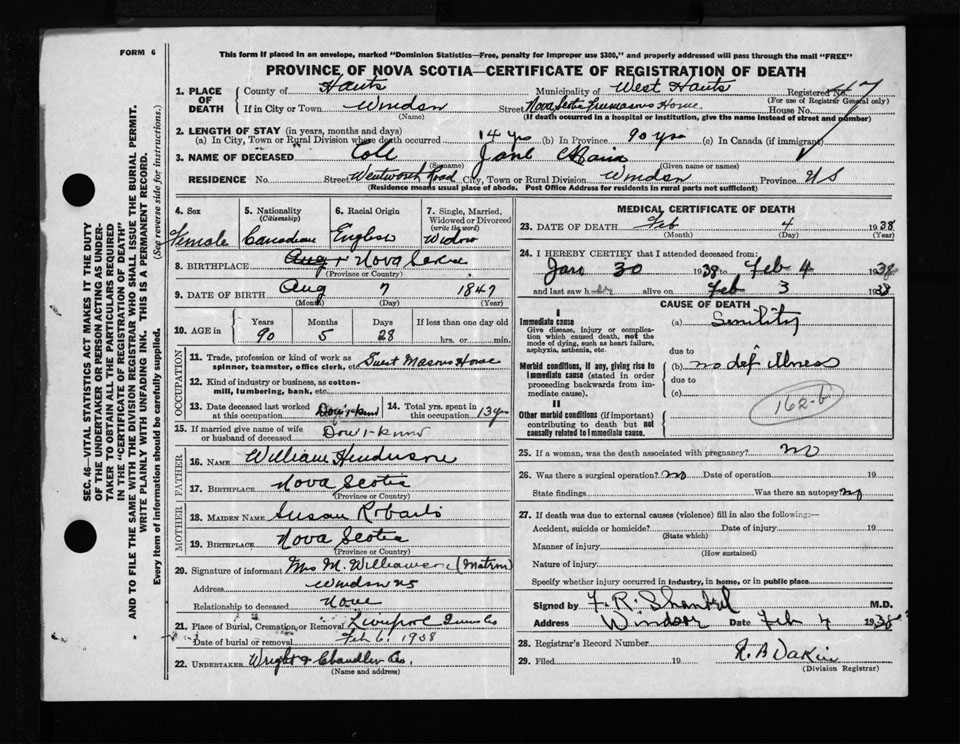 FORM 6
This form if placed in an envelope, marked "Dominion Statistics—Free, penalty for improper use $300," and properly addressed will pass through the mail "FREE"
PROVINCE OF NOVA SCOTIA—CERTIFICATE OF REGISTRATION OF DEATH
1. PLACE OF DEATH
County of Hants Municipality of West Hants Registered No. 47
(For use of Registrar General only)
If in City or Town Windsor Street Nova Scotia Freemasons Home House No.
(Name) (If death occurred in a hospital or institution, give the name instead of street and number)
2. LENGTH OF STAY (in years, months and days)
(a) In City, Town or Rural Division where death occurred 14 yrs (b) In Province 90 yrs (c) In Canada (if immigrant)
3. NAME OF DECEASED Cole Jane Maria
(Surname) (Given name or names)
RESIDENCE No. Street Wentworth Road City, Town or Rural Division Windsor Province NS
(Residence means usual place of abode. Post Office Address for residents in rural parts not sufficient)
4. Sex Female
5. Nationality (Citizenship) Canadian
6. Racial Origin English
7. Single, Married, Widowed or Divorced (write the word) Widow
8. BIRTHPLACE Aug Nova Scotia
(Province or Country)
9. DATE OF BIRTH Aug 7 1847
(Month) (Day) (Year)
10. AGE in Years 90 Months 5 Days 28 If less than one day old hrs. or min.
OCCUPATION
11. Trade, profession or kind of work as spinner, teamster, office clerk, etc. Guest Masons Home
12. Kind of industry or business, as cotton-mill, lumbering, bank, etc.
13. Date deceased last worked at this occupation Don't know
14. Total yrs. spent in this occupation 13 yrs
15. If married give name of wife or husband of deceased Don't know
FATHER
16. Name William Henderson
17. Birthplace Nova Scotia
(Province or Country)
MOTHER
18. Maiden Name Susan Roberts
19. Birthplace Nova Scotia
(Province or Country)
20. Signature of informant Mrs M. Williamson (Matron)
Address Windsor NS
Relationship to deceased None
21. Place of Burial, Cremation or Removal Liverpool Queens Co
Date of burial or removal Feb 6, 1938
22. UNDERTAKER Wright & Chandler Co.
(Name and address)
MEDICAL CERTIFICATE OF DEATH
23. DATE OF DEATH Feb 4 1938
(Month) (Day) (Year)
24. I HEREBY CERTIFY that I attended deceased from:
Jan 30 1938 to Feb 4 1938
and last saw her alive on Feb 3 1938
CAUSE OF DEATH
I
Immediate cause
Give disease, injury or complication which caused death, not the mode of dying, such as heart failure, asphyxia, asthenia, etc.
(a) Senility
due to
Morbid conditions, if any, giving rise to immediate cause (stated in order proceeding backwards from immediate cause).
(b) no def illness
due to
(c)
162-b
II
Other morbid conditions (if important) contributing to death but not causally related to immediate cause.
25. If a woman, was the death associated with pregnancy? no
26. Was there a surgical operation? no Date of operation 19
State findings Was there an autopsy? no
27. If death was due to external causes (violence) fill in also the following:—
Accident, suicide or homicide? Date of injury 19
(State which)
Manner of injury
(How sustained)
Nature of injury
Specify whether injury occurred in industry, in home, or in public place
Signed by F. R. Shankel M.D.
Address Windsor Date Feb 4 1938
28. Registrar's Record Number
29. Filed 19 R. A. Dakin
(Division Registrar)
SEC. 46—VITAL STATISTICS ACT MAKES IT THE DUTY
OF THE UNDERTAKER OR PERSON ACTING AS UNDER-
TAKER TO OBTAIN ALL THE PARTICULARS REQUIRED
IN THE "CERTIFICATE OF REGISTRATION OF DEATH"
AND TO FILE THE SAME WITH THE DIVISION REGISTRAR WHO SHALL ISSUE THE BURIAL PERMIT.
WRITE PLAINLY WITH UNFADING INK. THIS IS A PERMANENT RECORD.
Every item of information should be carefully supplied. (See reverse side for instructions.)